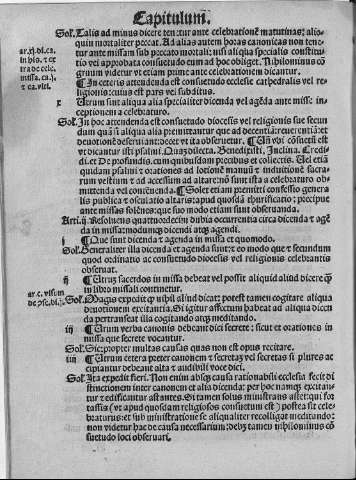 Capitulum.
Sol. Talis ad minus dicere ten:tur ante celebrationē matutinas: alio-
quin mortaliter peccat. Ad alias autem horas canonicas non tene-
tur ante missam sub peccato mortali: nisi aliqua specialis constitu-
tio vel approbata consuetudo eum ad hoc obliget. Nihilominus cō
gruum videtur vt etiam prime ante celebrationem dicantur.
¶ In ceteris attendenda est consuetudo ecclesie cathedralis vel re-
ligionis: cuius est pars vel subditus.
x Utrum sint aliqua alia specialiter dicenda vel agēda ante misse in-
ceptionem a celebraturo.
Sol. In hoc attendenda est consuetudo diocesis vel religionis sue secun
dum quā si aliqua alia premittantur que ad decentiā: reuerentiā: et
deuotionē deseruiant: decet vt ita obseruetur.
vt dicantur isti psalmi. Quā dilecta. Benedixisti. Inclina. Credi
di. et De profundis. cum quibusdam precibus et collectis. Uel etiā
quidam psalmi et orationes ad lotionē manuū et induitionē sacra-
rum vestium et ad accessum ad altare: nō sunt ista a celebraturo ob-
mittenda vel contēnenda. ¶ Solet etiam premitti confessio genera
lis publica et osculatio altaris: apud quosdā thurificatio: precipue
ante missas solēnes: que suo modo etiam sunt obseruanda.
Arti. ij. Resoluens quattuordecim dubia occurrentia circa dicenda et agē
da in missa: modumqꝫ dicendi atqꝫ agendi.
i ¶ Que sunt dicenda et agenda in missa et quomodo.
Sol. Generaliter illa dicenda et agenda sunt: et eo modo que et secundum
quod ordinatio ac consuetudo diocesis vel religionis celebrantis
obseruat.
ij ¶ Utrum sacerdos in missa debeat vel possit aliquid aliud dicere qꝫ
in libro missali continetur.
Sol. Magis expedit qꝫ nihil aliud dicat: potest tamen cogitare aliqua
deuotionem excitantia. Si igitur affectum habeat ad aliqua dicen
da pertranseat illa cogitando atqꝫ meditando.
iij ¶ Utrum verba canonis debeant dici secrete: sicut et orationes in
missa que secrete vocantur.
Sol. Sic: propter multas causas quas non est opus recitare.
iiij ¶ Utrum cetera preter canonem et secretas vel secretas si plures ac
cipiantur debeant alta et audibili voce dici.
Sol. Ita expedit fieri. Non enim absqꝫ causa rationabili ecclesia fecit di
stinctionem inter canonem et alia dicenda: per hoc namqꝫ excitan-
tur et edificantur astantes. Si tamen solus ministrans astet: qui for
tassis (vt apud quosdam religiosos consuetum est) postea sit cele-
braturus: et sub ministratione se aliqualiter recolligat meditando:
non videtur hac de causa necessarium: debꝫ tamen nihilominus cō
suetudo loci obseruari.